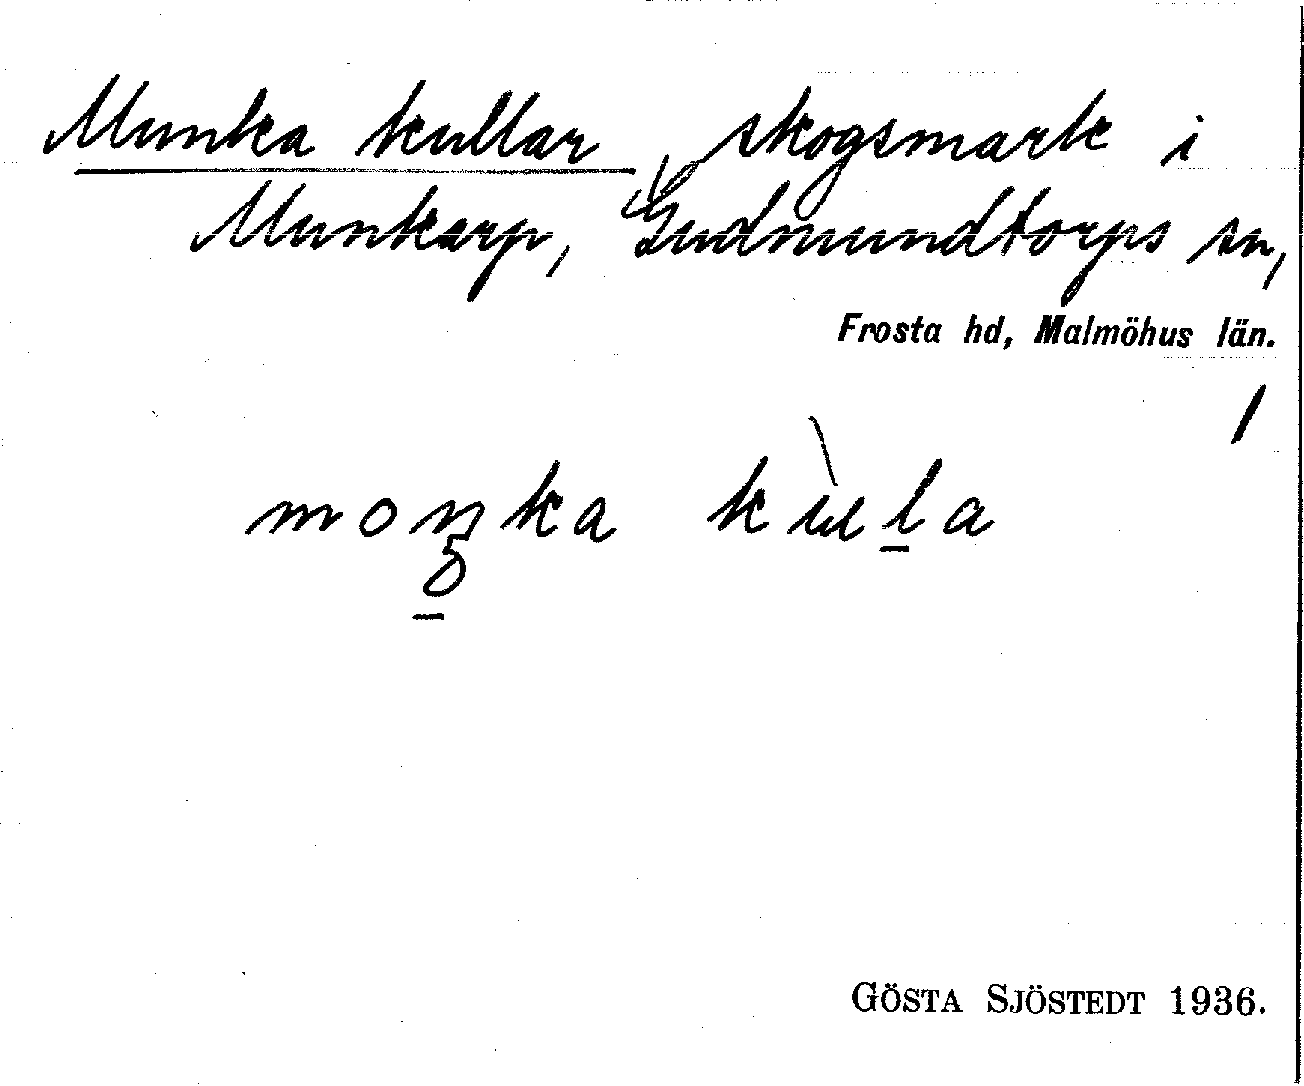 Munka kullar, skogsmark i
Munkarp, Gudmundtorps sn,
Frosta hd, Malmöhus län.
/
moŋka kùla
GÖSTA SJÖSTEDT 1936.